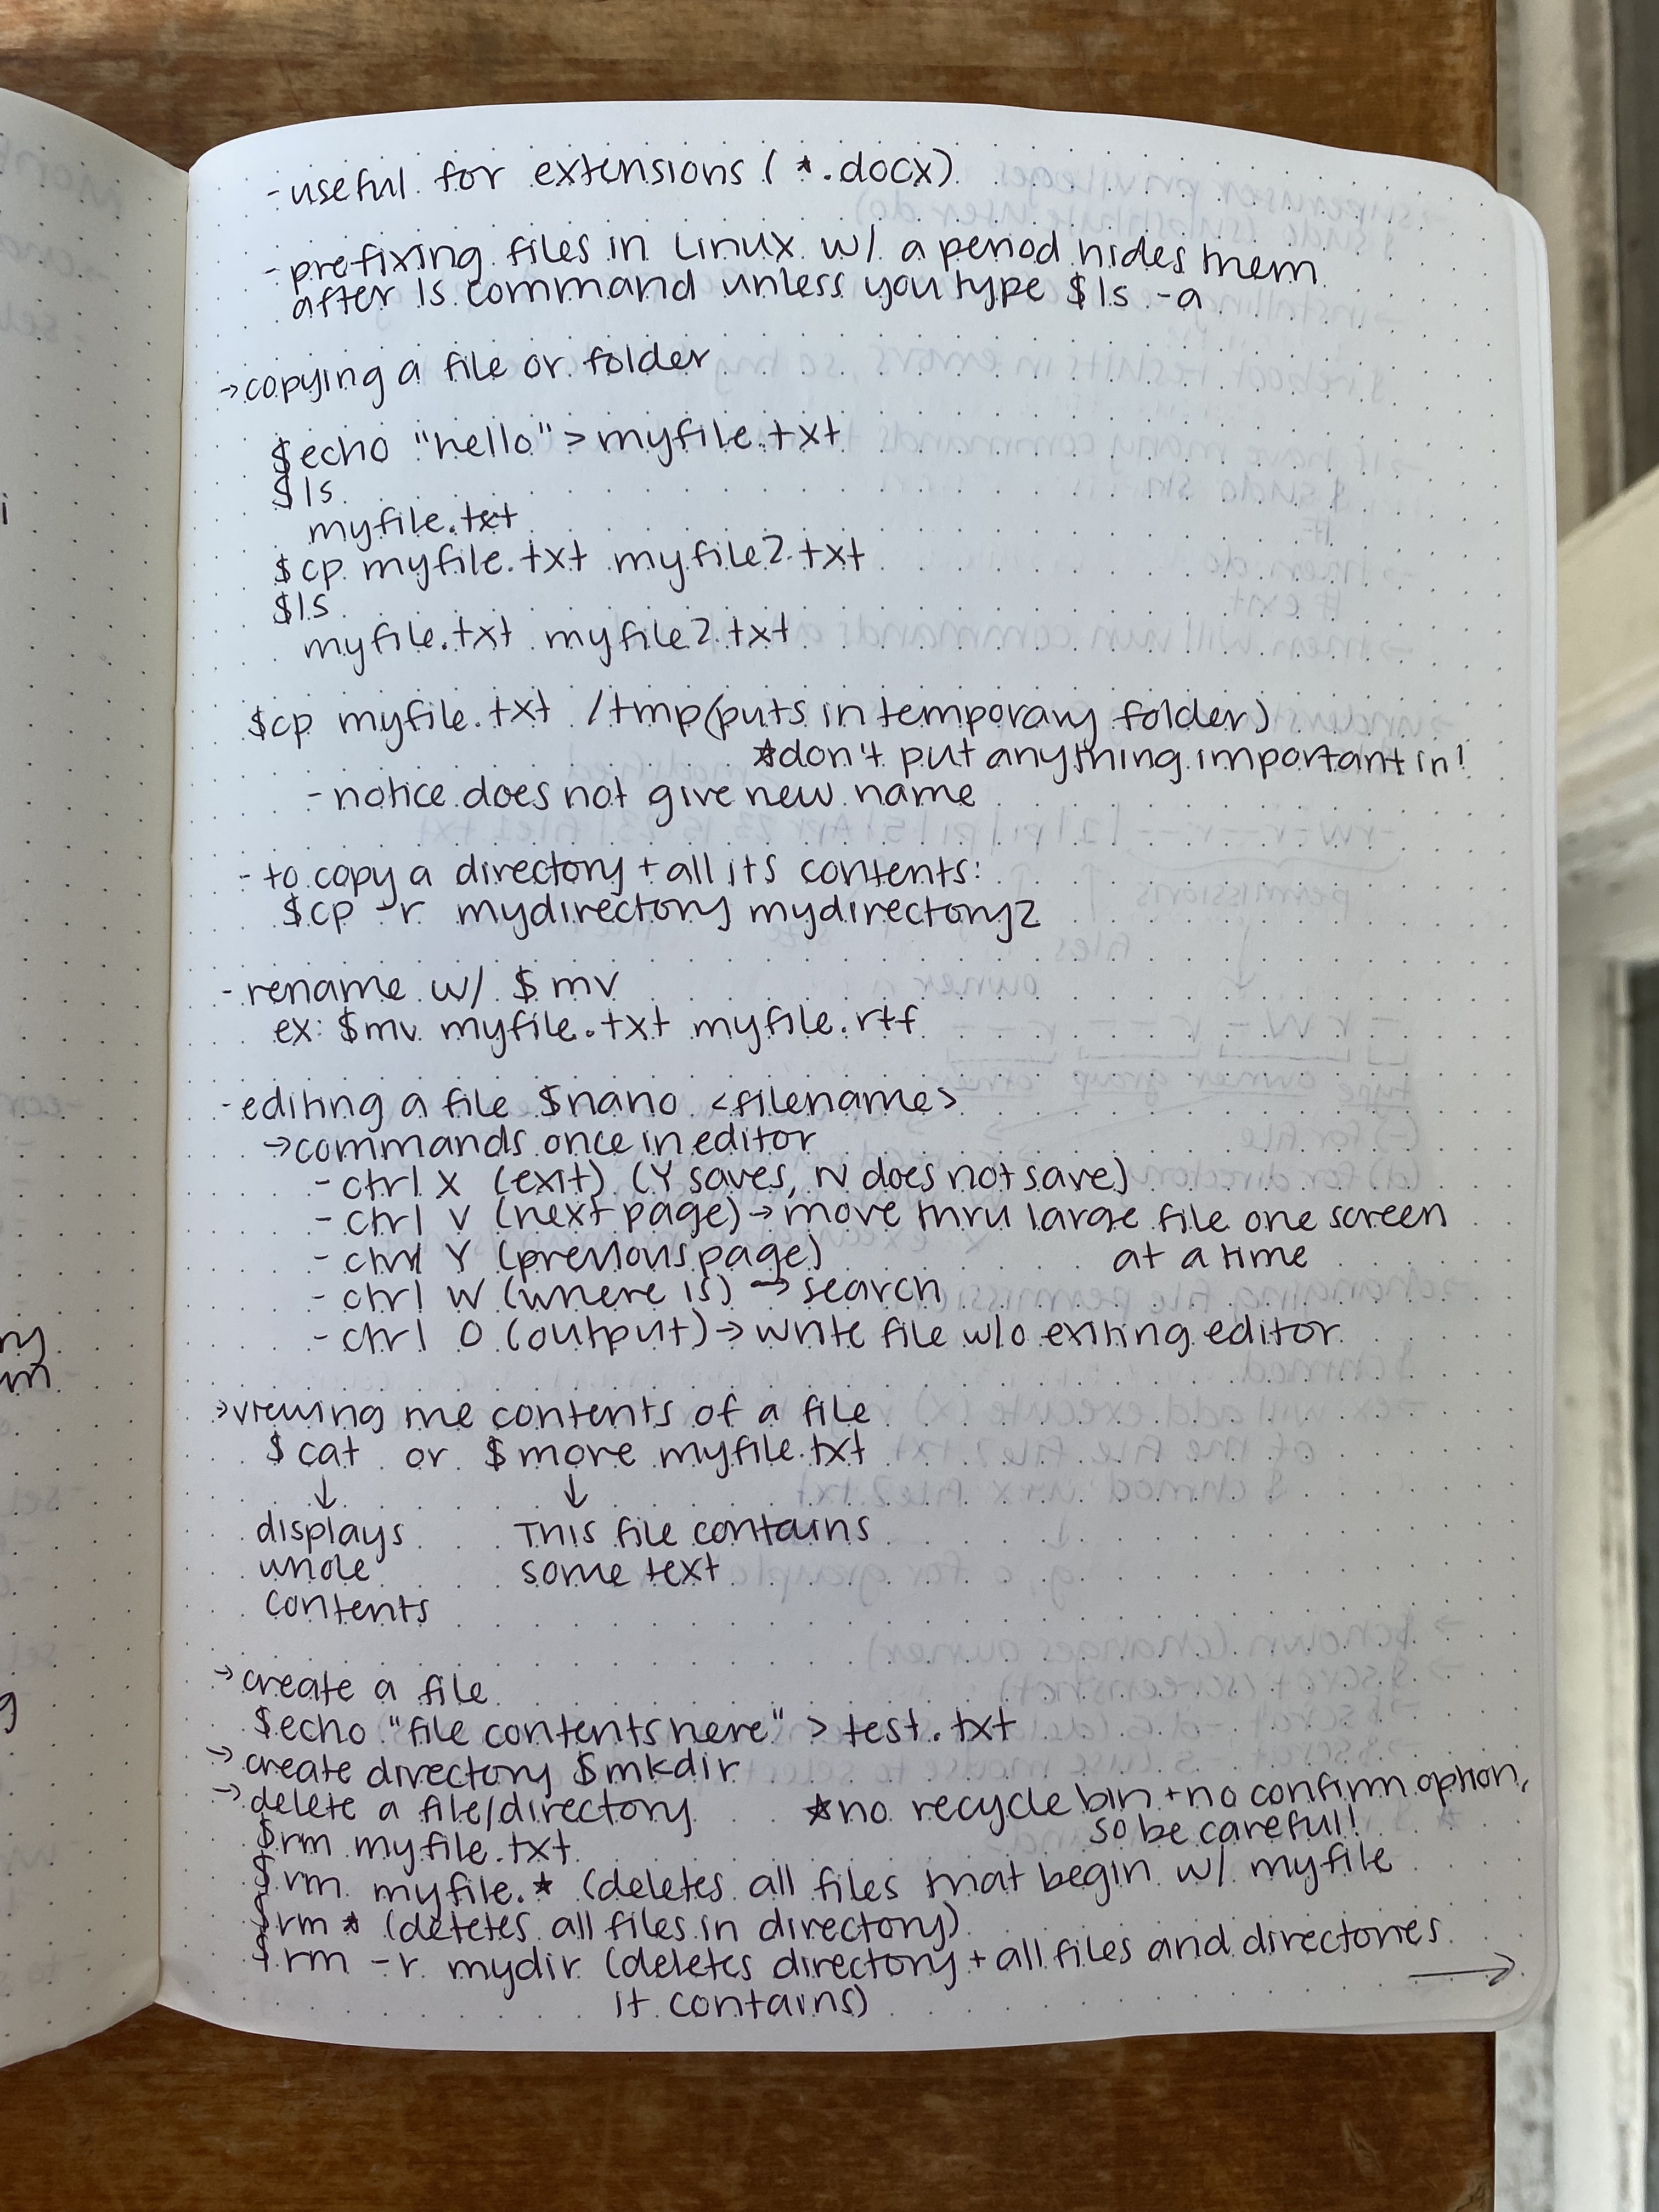 - useful for extensions ( *.docx)
- prefixing files in Linux w/ a period hides them
after ls command unless you type $ls -a
→ copying a file or folder
$echo "hello" > myfile.txt
$ls
myfile.txt
$cp myfile.txt myfile2.txt
$ls
myfile.txt myfile2.txt
$cp myfile.txt /tmp (puts in temporary folder)
*don't put anything important in!
- notice does not give new name
- to copy a directory + all its contents:
$cp -r mydirectory mydirectory2
- rename w/ $mv
ex: $mv myfile.txt myfile.rtf
- editing a file $nano <filename>
→ commands once in editor
- ctrl X (exit) (Y saves, N does not save)
- ctrl V (next page) → move thru large file one screen
at a time
- ctrl Y (previous page)
- ctrl W (where is) → search
- ctrl O (output) → write file w/o exiting editor
→ viewing the contents of a file
$cat or $more myfile.txt
↓ ↓
displays This file contains
whole some text
contents
→ create a file
$echo "file contents here" > test.txt
→ create directory $mkdir
→ delete a file/directory *no recycle bin + no confirm option,
so be careful!
$rm myfile.txt
$rm myfile.* (deletes all files that begin w/ myfile
$rm * (deletes all files in directory)
$rm -r mydir (deletes directory + all files and directories
it contains) →